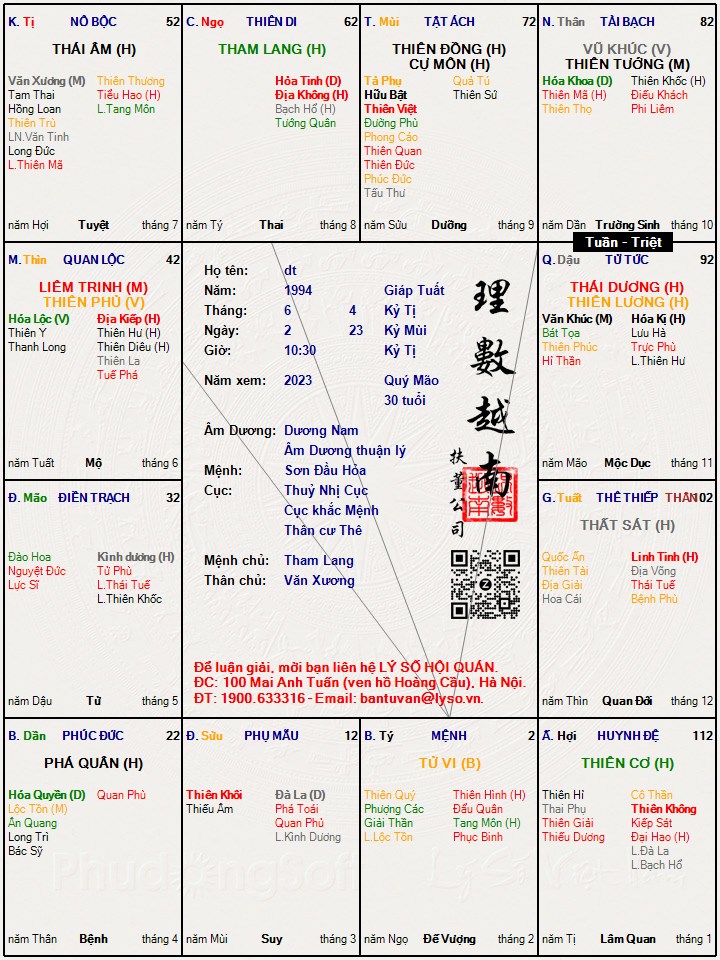 K. Tị NÔ BỘC 52
THÁI ÂM (H)
Văn Xương (M)
Tam Thai
Hồng Loan
Thiên Trù
LN.Văn Tinh
Long Đức
L.Thiên Mã
Thiên Thương
Tiểu Hao (H)
L.Tang Môn
năm Hợi Tuyệt tháng 7
C. Ngọ THIÊN DI 62
THAM LANG (H)
Hỏa Tinh (D)
Địa Không (H)
Bạch Hổ (H)
Tướng Quân
năm Tý Thai tháng 8
T. Mùi TẬT ÁCH 72
THIÊN ĐỒNG (H)
CỰ MÔN (H)
Tả Phụ
Hữu Bật
Thiên Việt
Đường Phù
Phong Cáo
Thiên Quan
Thiên Đức
Phúc Đức
Tấu Thư
Quả Tú
Thiên Sứ
năm Sửu Dưỡng tháng 9
N. Thân TÀI BẠCH 82
VŨ KHÚC (V)
THIÊN TƯỚNG (M)
Hóa Khoa (D)
Thiên Mã (H)
Thiên Thọ
Thiên Khốc (H)
Điếu Khách
Phi Liêm
năm Dần Trường Sinh tháng 10
Tuần - Triệt
M. Thìn QUAN LỘC 42
LIÊM TRINH (M)
THIÊN PHỦ (V)
Hóa Lộc (V)
Thiên Y
Thanh Long
Địa Kiếp (H)
Thiên Hư (H)
Thiên Diêu (H)
Thiên La
Tuế Phá
năm Tuất Mộ tháng 6
Họ tên: dt
Năm: 1994 Giáp Tuất
Tháng: 6 4 Kỷ Tị
Ngày: 2 23 Kỷ Mùi
Giờ: 10:30 Kỷ Tị
Năm xem: 2023 Quý Mão
30 tuổi
Âm Dương: Dương Nam
Âm Dương thuận lý
Mệnh: Sơn Đầu Hỏa
Cục: Thuỷ Nhị Cục
Cục khắc Mệnh
Thân cư Thê
Mệnh chủ: Tham Lang
Thân chủ: Văn Xương
理數越南
扶董公司
Để luận giải, mời bạn liên hệ LÝ SỐ HỘI QUÁN.
ĐC: 100 Mai Anh Tuấn (ven hồ Hoàng Cầu), Hà Nội.
ĐT: 1900.633316 - Email: bantuvan@lyso.vn.
Q. Dậu TỬ TỨC 92
THÁI DƯƠNG (H)
THIÊN LƯƠNG (H)
Văn Khúc (M)
Bát Tọa
Thiên Phúc
Hỉ Thần
Hóa Kị (H)
Lưu Hà
Trực Phù
L.Thiên Hư
năm Mão Mộc Dục tháng 11
Đ. Mão ĐIỀN TRẠCH 32
Đào Hoa
Nguyệt Đức
Lực Sĩ
Kình dương (H)
Tử Phù
L.Thái Tuế
L.Thiên Khốc
năm Dậu Tử tháng 5
G. Tuất THÊ THIẾP THÂN 102
THẤT SÁT (H)
Quốc Ấn
Thiên Tài
Địa Giải
Hoa Cái
Linh Tinh (H)
Địa Võng
Thái Tuế
Bệnh Phù
năm Thìn Quan Đới tháng 12
B. Dần PHÚC ĐỨC 22
PHÁ QUÂN (H)
Hóa Quyền (D)
Lộc Tồn (M)
Ân Quang
Long Trì
Bác Sỹ
Quan Phù
năm Thân Bệnh tháng 4
Đ. Sửu PHỤ MẪU 12
Thiên Khôi
Thiếu Âm
Đà La (D)
Phá Toái
Quan Phủ
L.Kình Dương
năm Mùi Suy tháng 3
B. Tý MỆNH 2
TỬ VI (B)
Thiên Quý
Phượng Các
Giải Thần
L.Lộc Tồn
Thiên Hình (H)
Đẩu Quân
Tang Môn (H)
Phục Binh
năm Ngọ Đế Vượng tháng 2
Ấ. Hợi HUYNH ĐỆ 112
THIÊN CƠ (H)
Thiên Hỉ
Thai Phụ
Thiên Giải
Thiếu Dương
Cô Thần
Thiên Không
Kiếp Sát
Đại Hao (H)
L.Đà La
L.Bạch Hổ
năm Tị Lâm Quan tháng 1